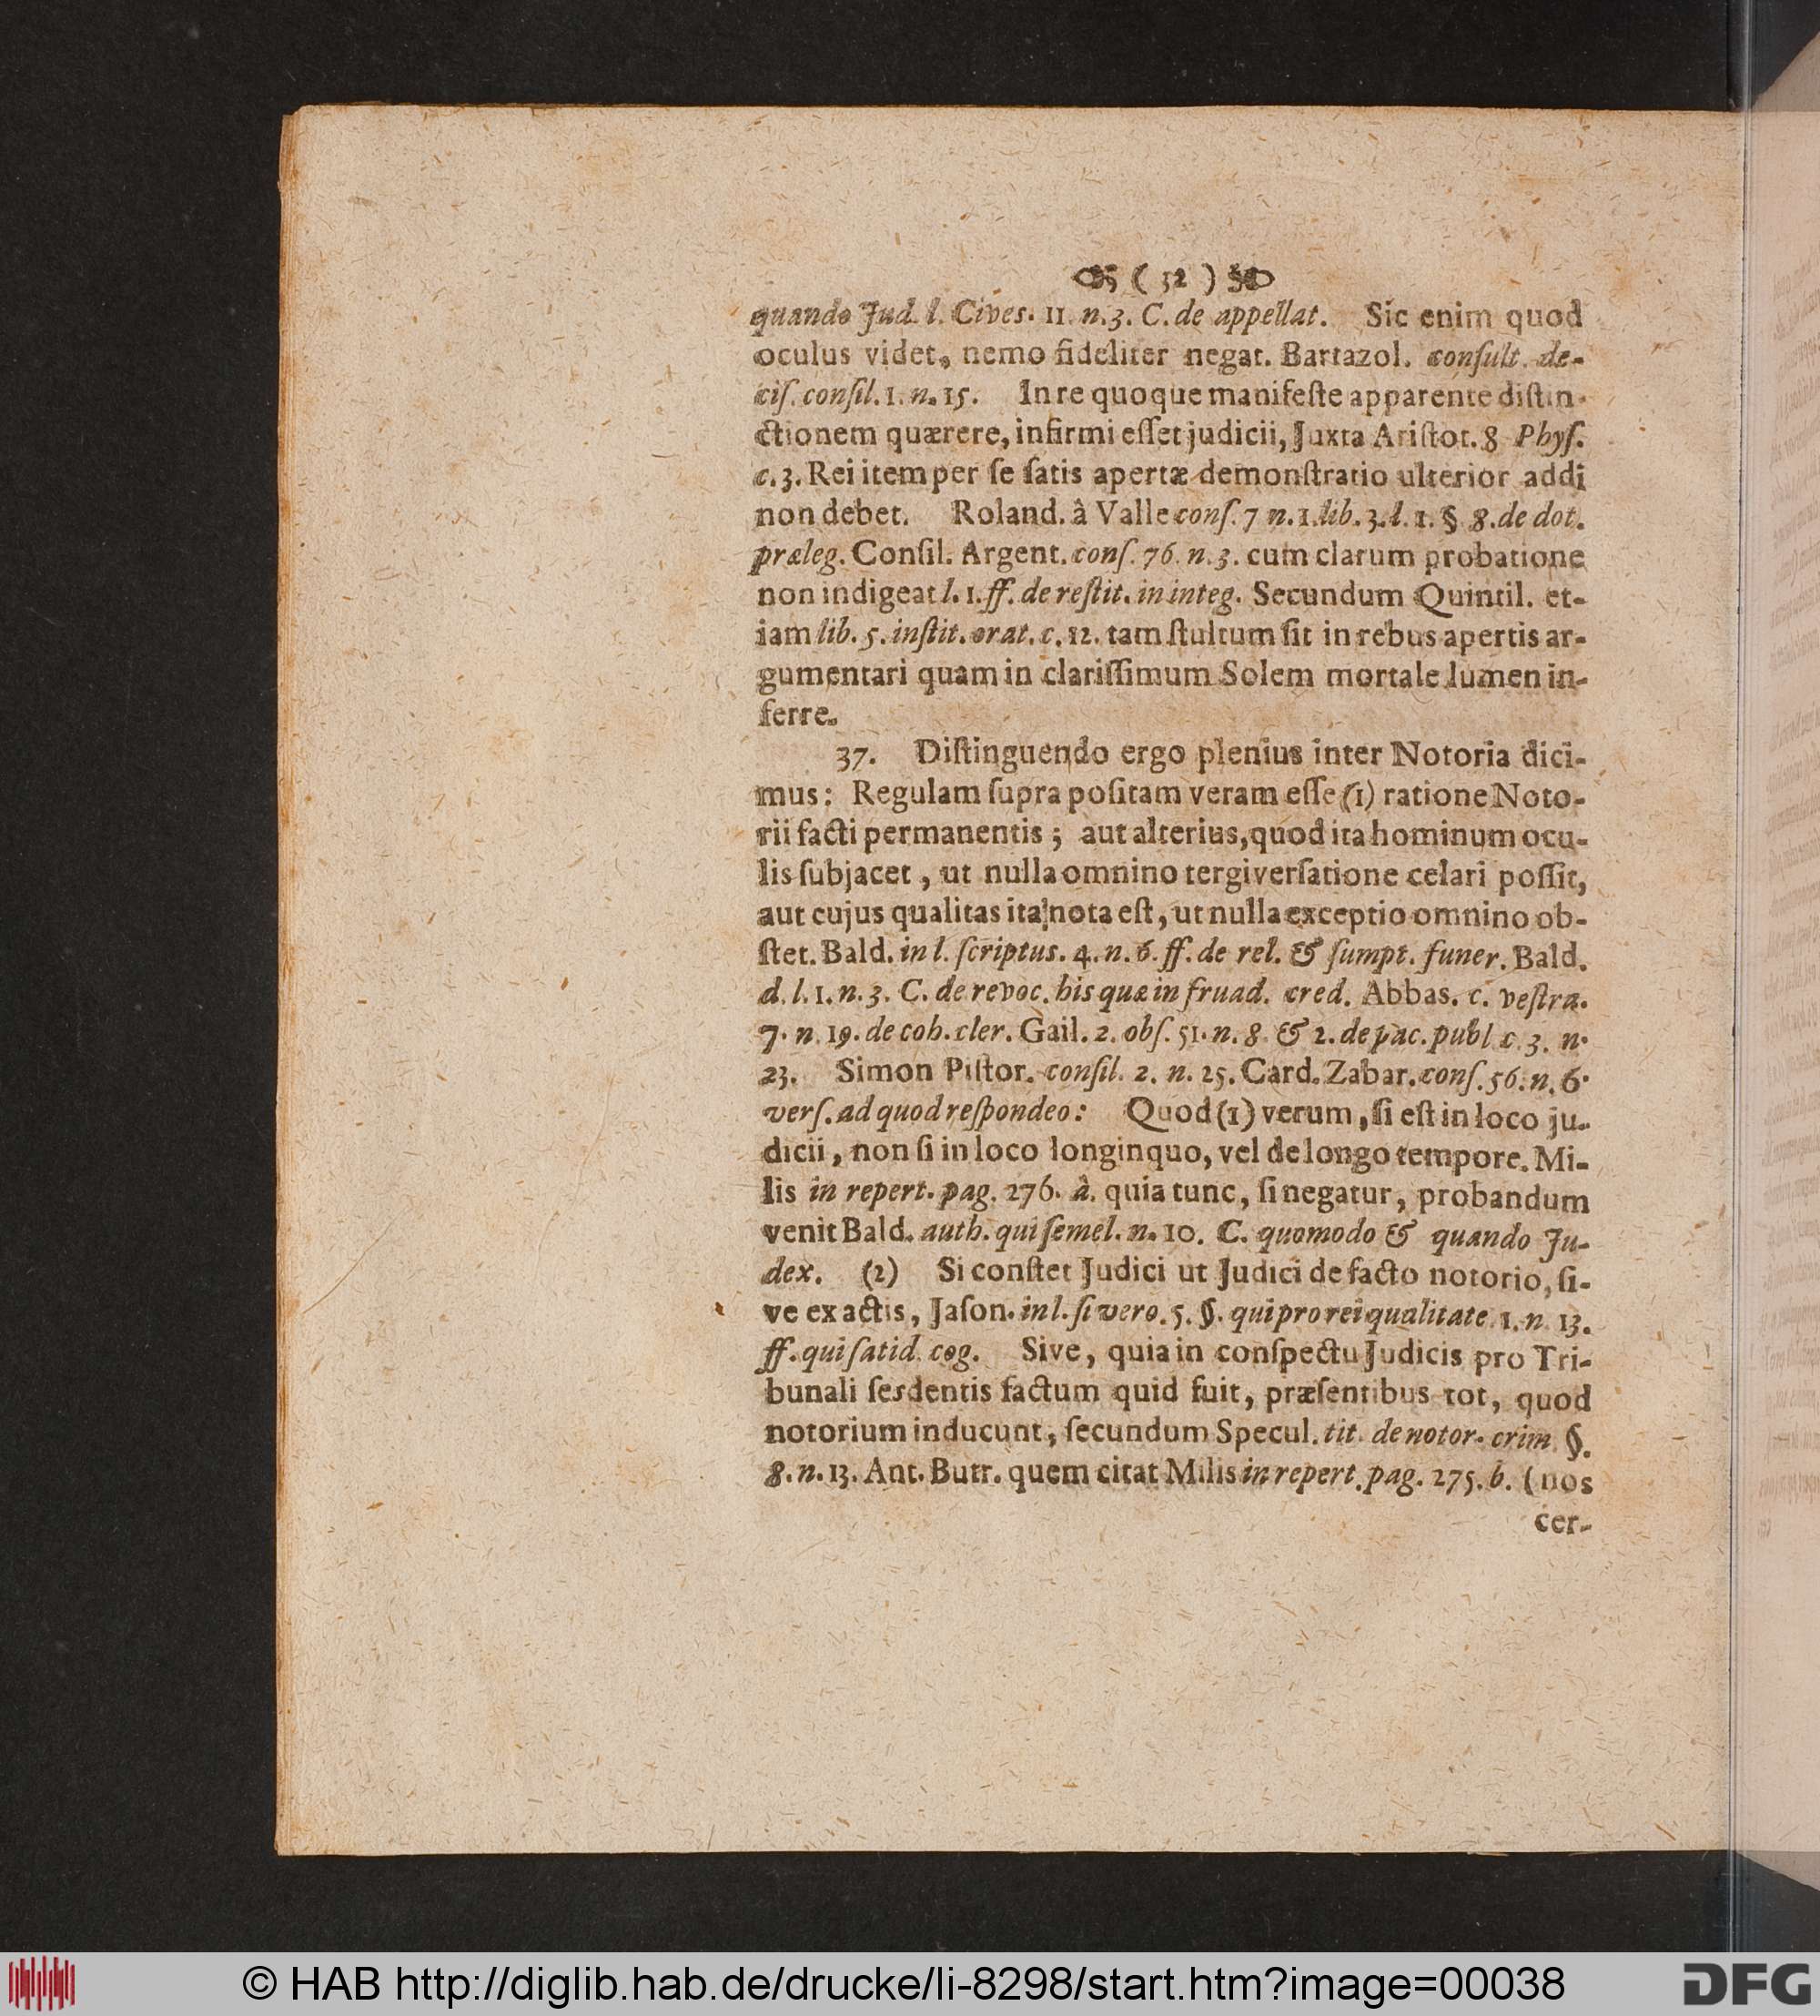 ( 32 )
quando Jud. l. Cives. 11. n. 3. C. de appellat. Sic enim quod
oculus videt, nemo fideliter negat. Bartazol. conſult. de-
ciſ. conſil. 1. n. 15. In re quoque manifeſte apparente diſtin-
ctionem quærere, infirmi eſſet judicii, Juxta Ariſtot. 8 Phyſ.
c. 3. Rei item per ſe ſatis apertæ demonſtratio ulterior addi
non debet. Roland. â Valle conſ. 7 n. 1. lib. 3. l. 1. § 8. de dot.
præleg. Conſil. Argent. conſ. 76. n. 3. cum clarum probatione
non indigeat l. 1. ff. de reſtit. in integ. Secundum Quintil. et-
iam lib. 5. inſtit. orat. c. 12. tam ſtultum ſit in rebus apertis ar-
gumentari quam in clariſſimum Solem mortale lumen in-
ferre.
37. Diſtinguendo ergo plenius inter Notoria dici-
mus: Regulam ſupra poſitam veram eſſe (1) ratione Noto-
rii facti permanentis; aut alterius, quod ita hominum ocu-
lis ſubjacet, ut nulla omnino tergiverſatione celari poſſit,
aut cujus qualitas ita nota eſt, ut nulla exceptio omnino ob-
ſtet. Bald. in l. ſcriptus. 4. n. 6. ff. de rel. & ſumpt. funer. Bald.
d. l. 1. n. 3. C. de revoc. his quæ in fruad. cred. Abbas. c. veſtra.
7. n. 19. de coh. cler. Gail. 2. obſ. 51. n. 8. & 2. de pac. publ c. 3. n.
23. Simon Piſtor. conſil. 2. n. 25. Card. Zabar. conſ. 56. n. 6.
verſ. ad quod reſpondeo: Quod (1) verum, ſi eſt in loco ju-
dicii, non ſi in loco longinquo, vel de longo tempore. Mi-
lis in repert. pag. 276. à. quia tunc, ſi negatur, probandum
venit Bald. auth. qui ſemel. n. 10. C. quomodo & quando Ju-
dex. (2) Si conſtet Judici ut Judici de facto notorio, ſi-
ve ex actis, Jaſon. in l. ſi vero. 5. §. qui pro rei qualitate. 1. n. 13.
ff. qui ſatid. cog. Sive, quia in conſpectu Judicis pro Tri-
bunali ſesdentis factum quid fuit, præſentibus tot, quod
notorium inducunt, ſecundum Specul. tit. de notor. crim. §.
8. n. 13. Ant. Butr. quem citat Milis in repert. pag. 275. b. (nos
cer-
© HAB http://diglib.hab.de/drucke/li-8298/start.htm?image=00038
DFG